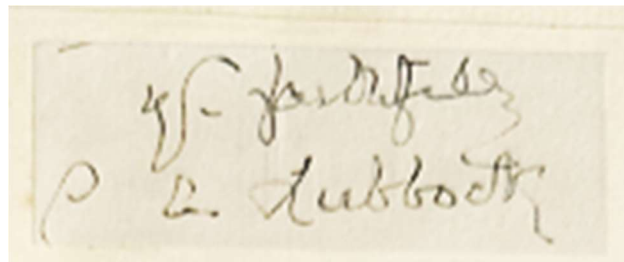 yrs faithfully
Lubbock